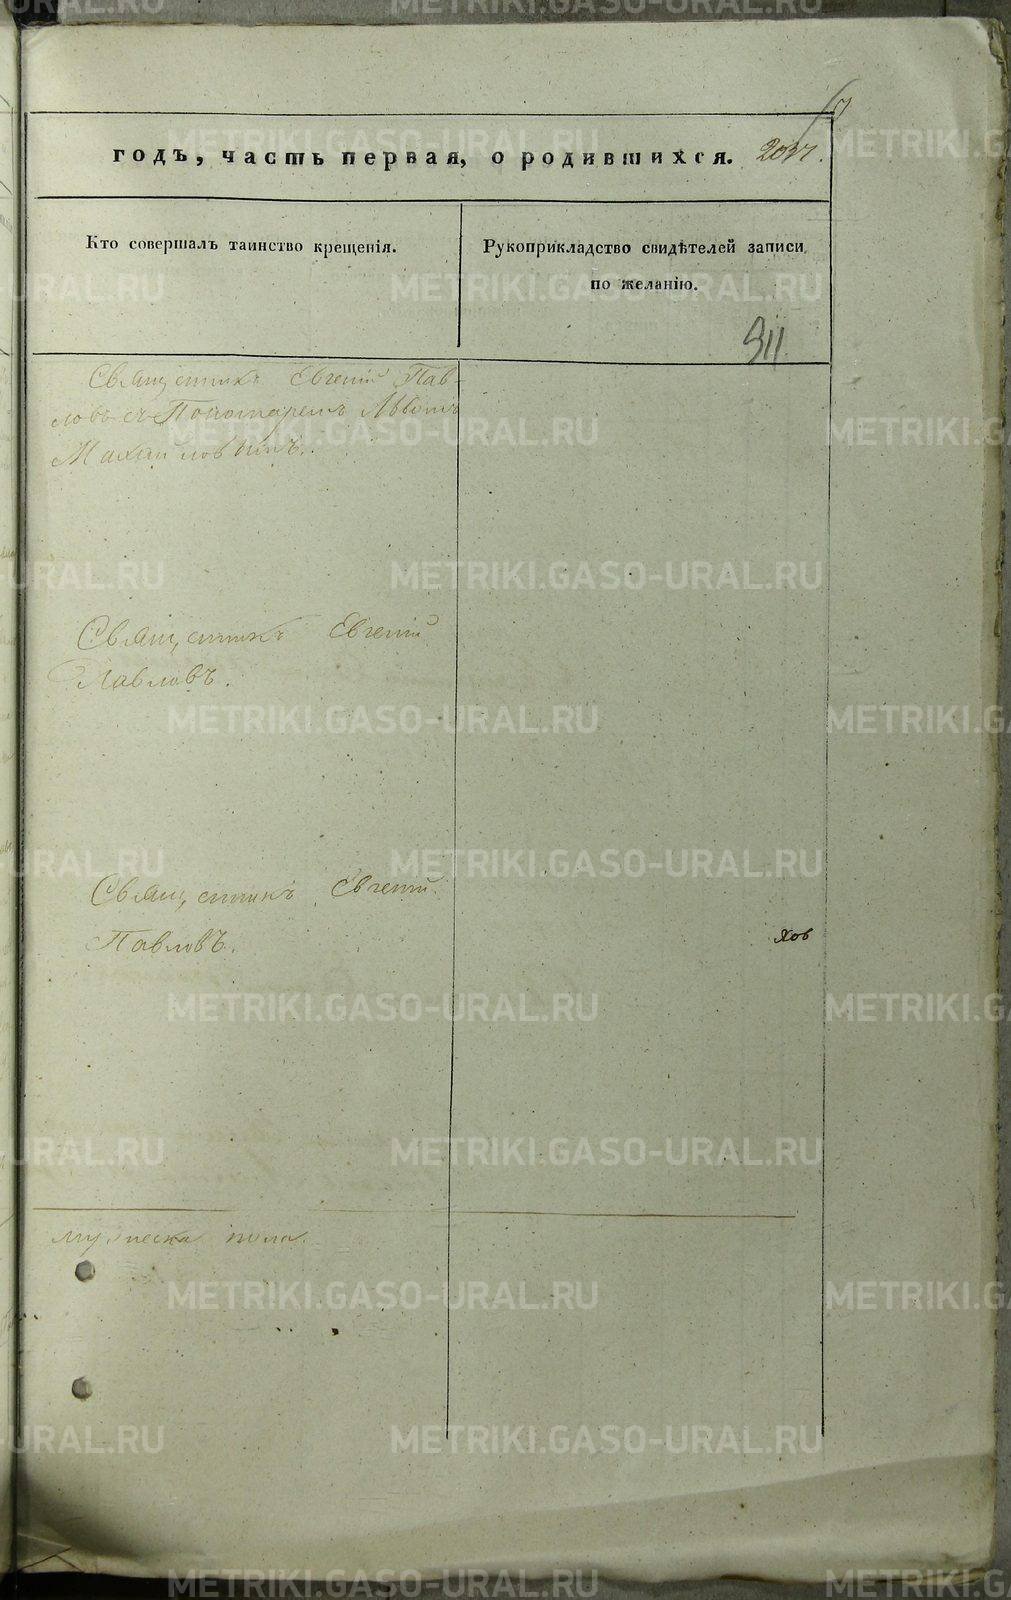 годъ, часть первая, о родившихся.
Кто совершалъ таинство крещенія.
Рукоприкладство свидѣтелей записи
по желанію.
911
Священникъ Евгеній Пав-
ловъ съ Пономаремъ Львомъ
Михайловымъ.
Священникъ Евгеній
Павловъ.
Священникъ Евгеній
Павловъ.
хов
мужеска пола
METRIKI.GASO-URAL.RU